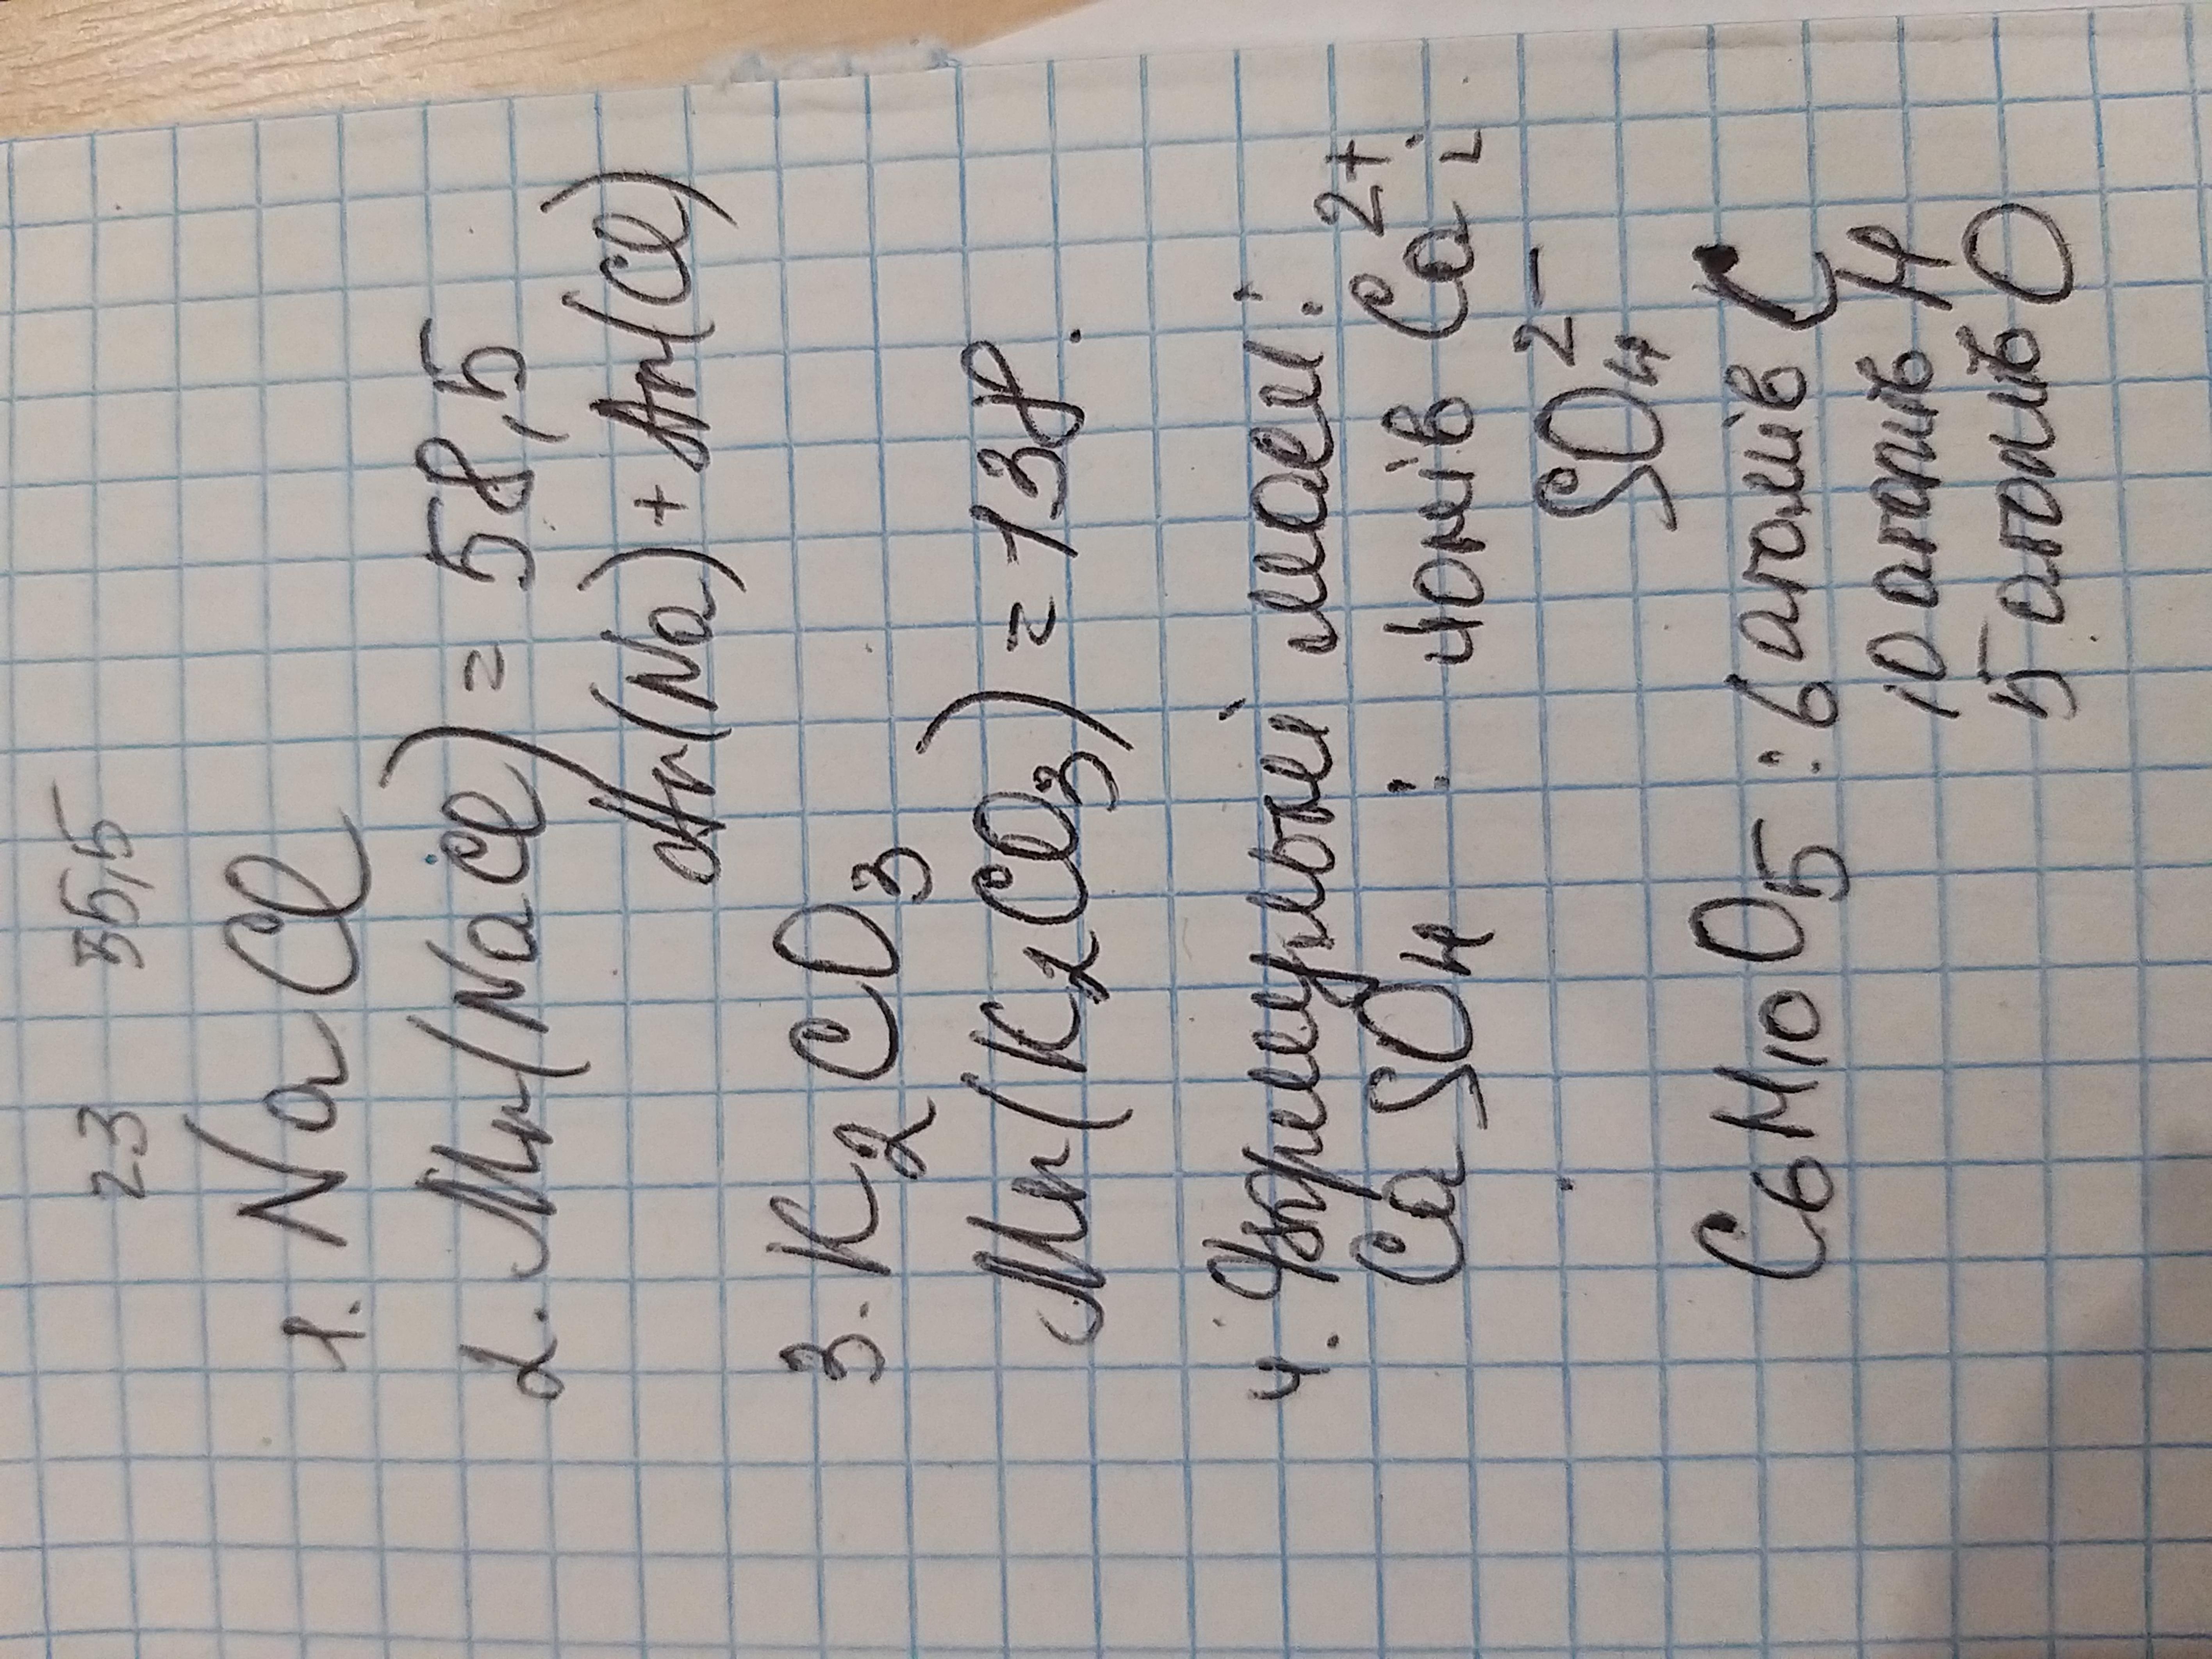 23 35,5
1. NaCl
2. Mr(NaCl) = 58,5
Ar(Na) + Ar(Cl)
3. K₂CO₃
Mr(K₂CO₃) = 138.
4. Формульної маси:
CaSO₄ : йонів Ca²⁺ і
SO₄²⁻
C₆H₁₀O₅ : 6 атомів C
10 атомів H
5 атомів O